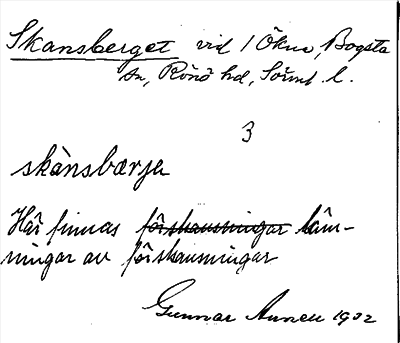 Skansberget vid 1 Ökna, Bogsta
sn, Rönö hd, Sörml. l.
3
skànsbærjə
Här finnas förskansningar läm-
ningar av förskansningar
Gunnar Annell 1932